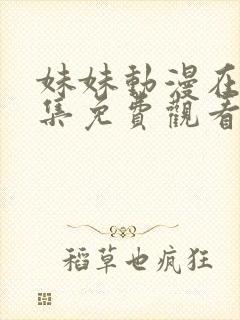 妹妹動漫在
集免費觀看
稻草也疯狂